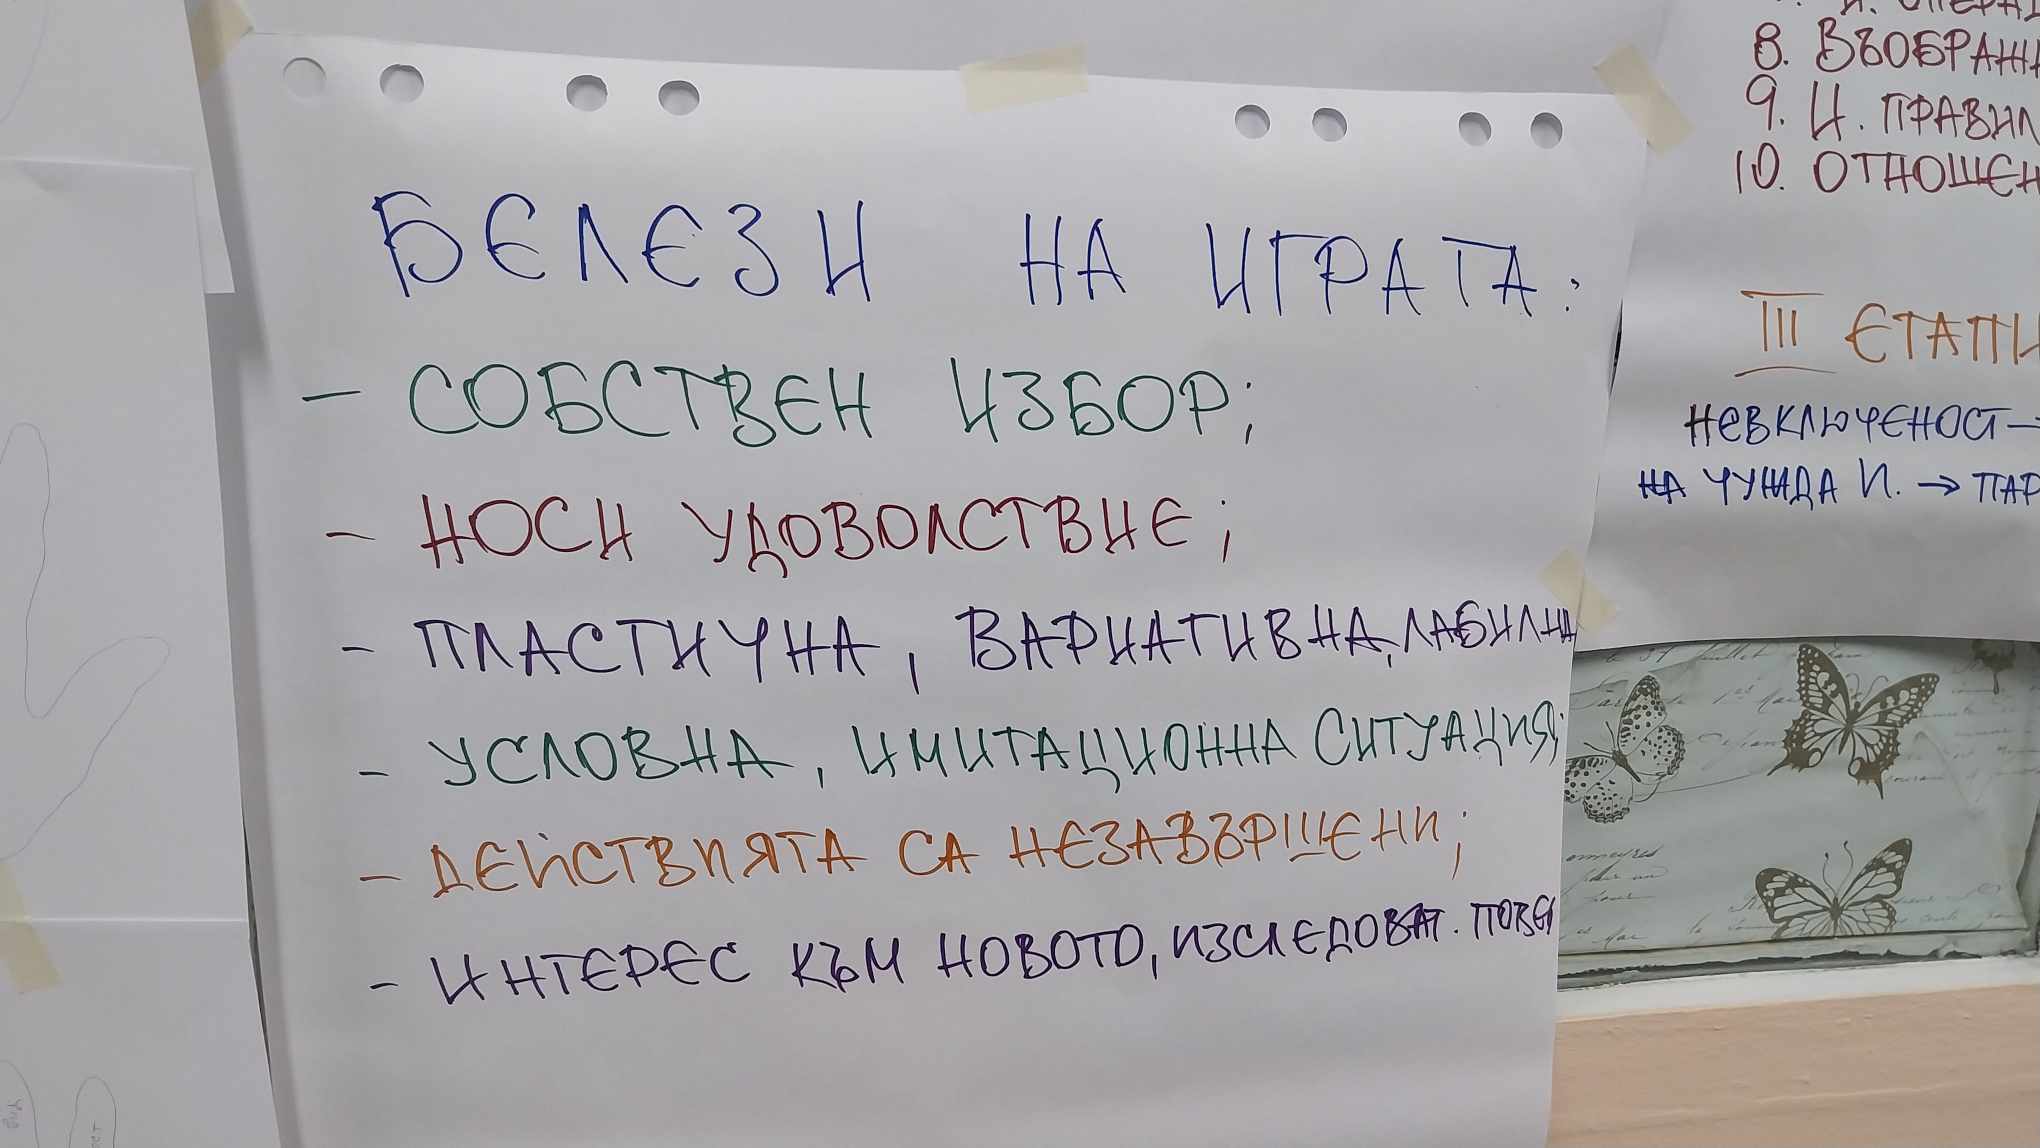 БЕЛЕЗИ НА ИГРАТА:
- СОБСТВЕН ИЗБОР;
- НОСИ УДОВОЛСТВИЕ;
- ПЛАСТИЧНА, ВАРИАТИВНА, ЛАБИЛНА
- УСЛОВНА, ИМИТАЦИОННА СИТУАЦИЯ;
- ДЕЙСТВИЯТА СА НЕЗАВЪРШЕНИ;
- ИНТЕРЕС КЪМ НОВОТО, ИЗСЛЕДОВАТ.
8. ВЪОБРАЖ
9. И. ПРАВИЛ
10. ОТНОШЕН
III ЕТАПИ
НЕВКЛЮЧЕНОСТ →
НА ЧУЖДА И. → ПАР